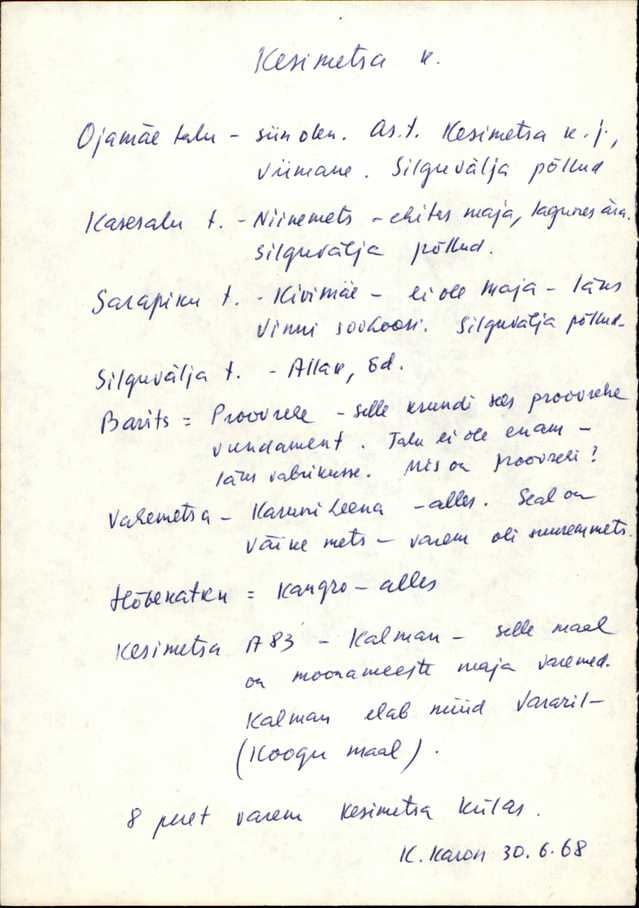 Kesimetsa k.
Ojamäe talu - siin olen. As.t. Kesimetsa k.j.,
viimane. Silguvälja põllud
Kasesalu t. - Niinemets - ehitas maja, lagunes ära.
Silguvälja põllud.
Sarapiku t. - Kivimäe - ei ole maja - läks
Vinni sovhoosi. Silguvälja põllud-
Silguvälja t. - Allak, Ed.
Barits = Proovrehe - selle krundi sees proovrehe
vundament. Talu ei ole enam -
läks vabrikusse. Mis on proovrehi?
Vahemetsa - Leena - alles. Seal on
väike mets - varem oli suurem mets.
Hõbekatku = Kangro - alles
Kesimetsa A83 - Kalman - selle maal
on moonameeste maja varemed.
Kalman elab nüüd Vararil-
(Koogu maal).
8 peret varem Kesimetsa külas.
K. Karon 30.6.68